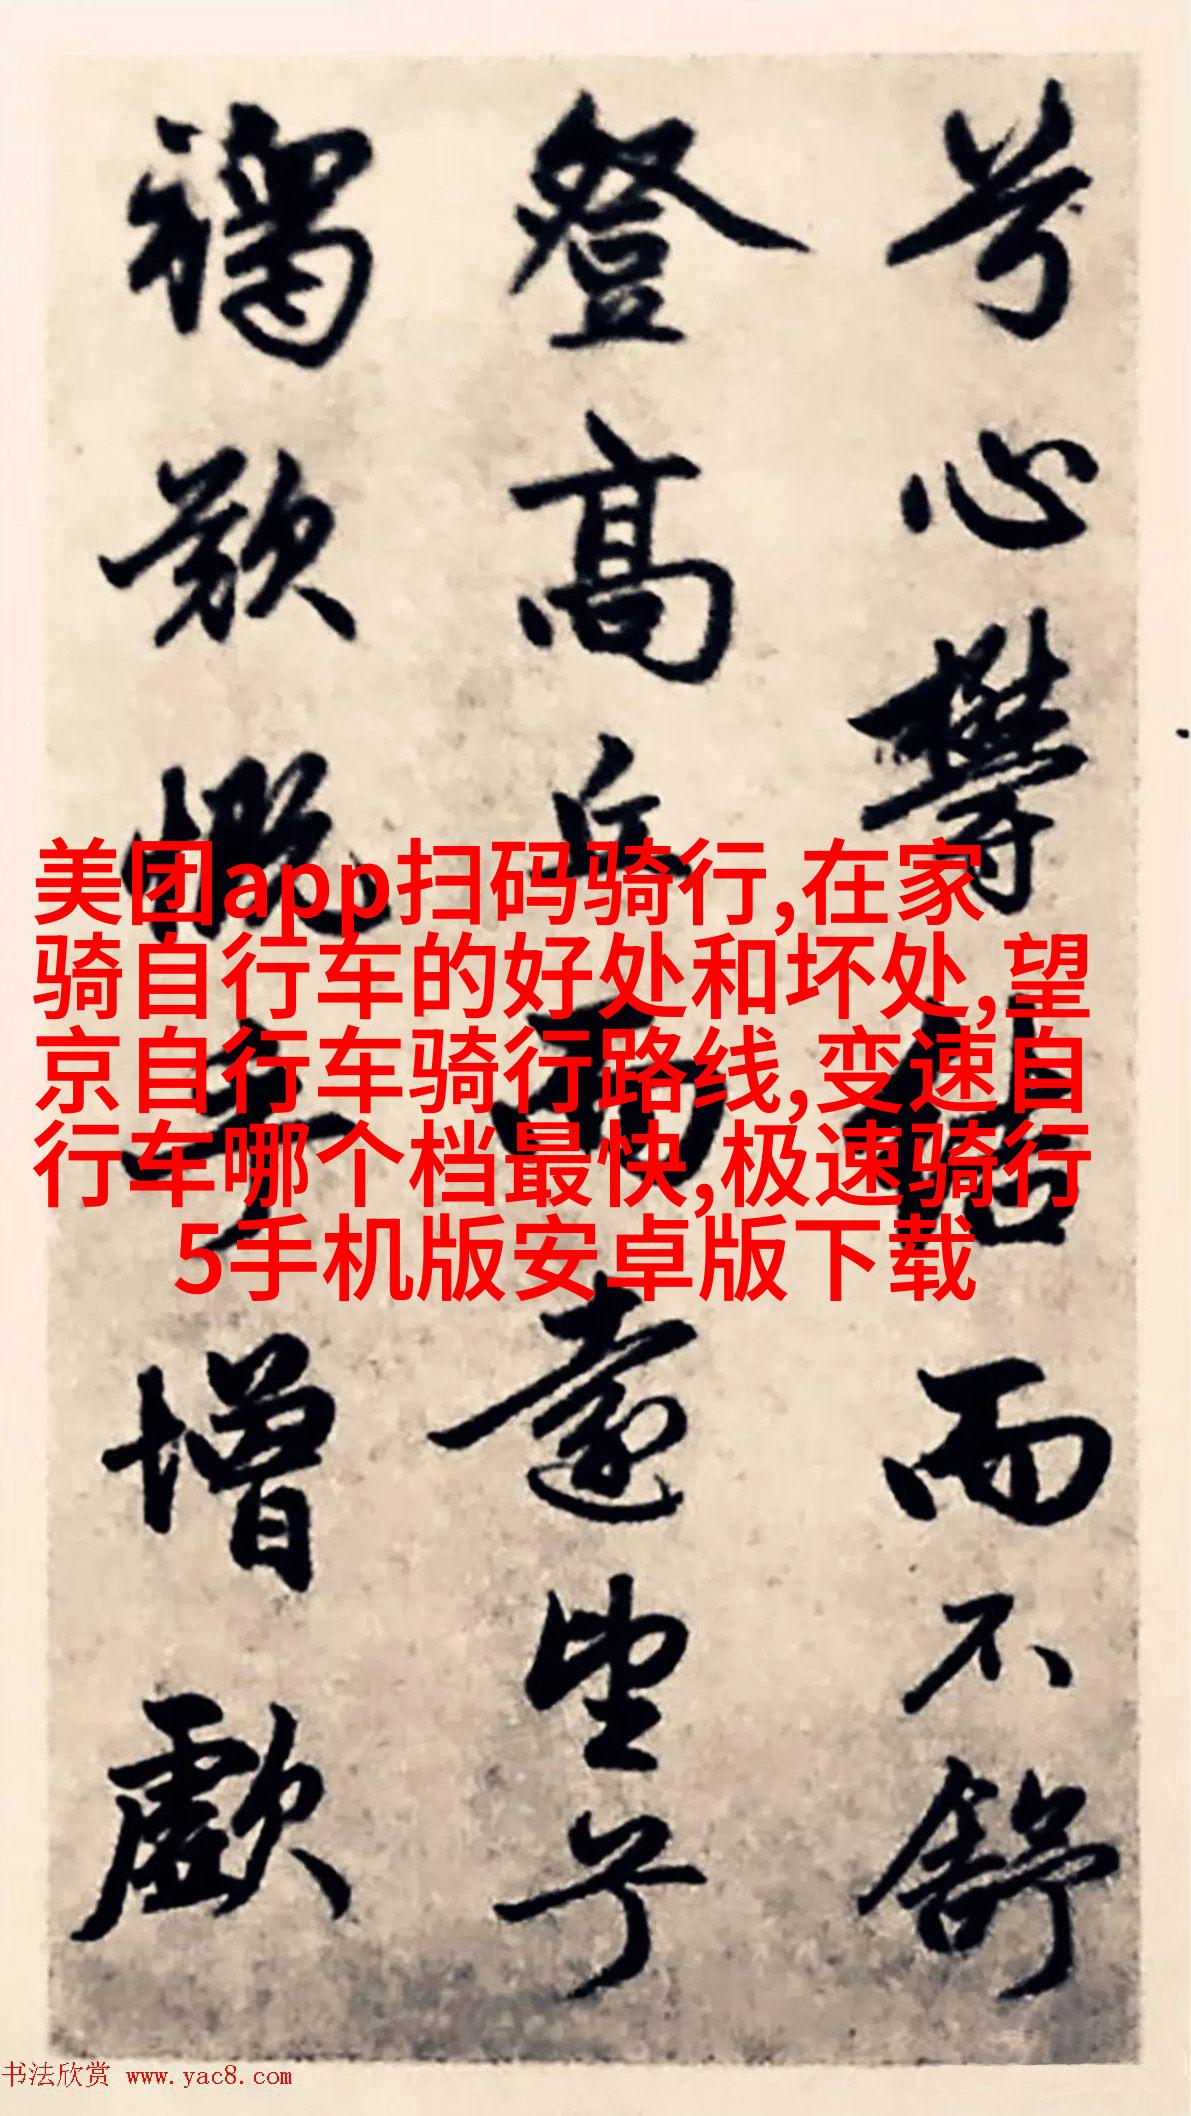 兮心鬱結而不舒
登高丘而遠望兮
歎慨增歔
美团app扫码骑行,在家
骑自行车的好处和坏处,望
京自行车骑行路线,变速自
行车哪个档最快,极速骑行
5手机版安卓版下载
书法欣赏 www.yac8.com